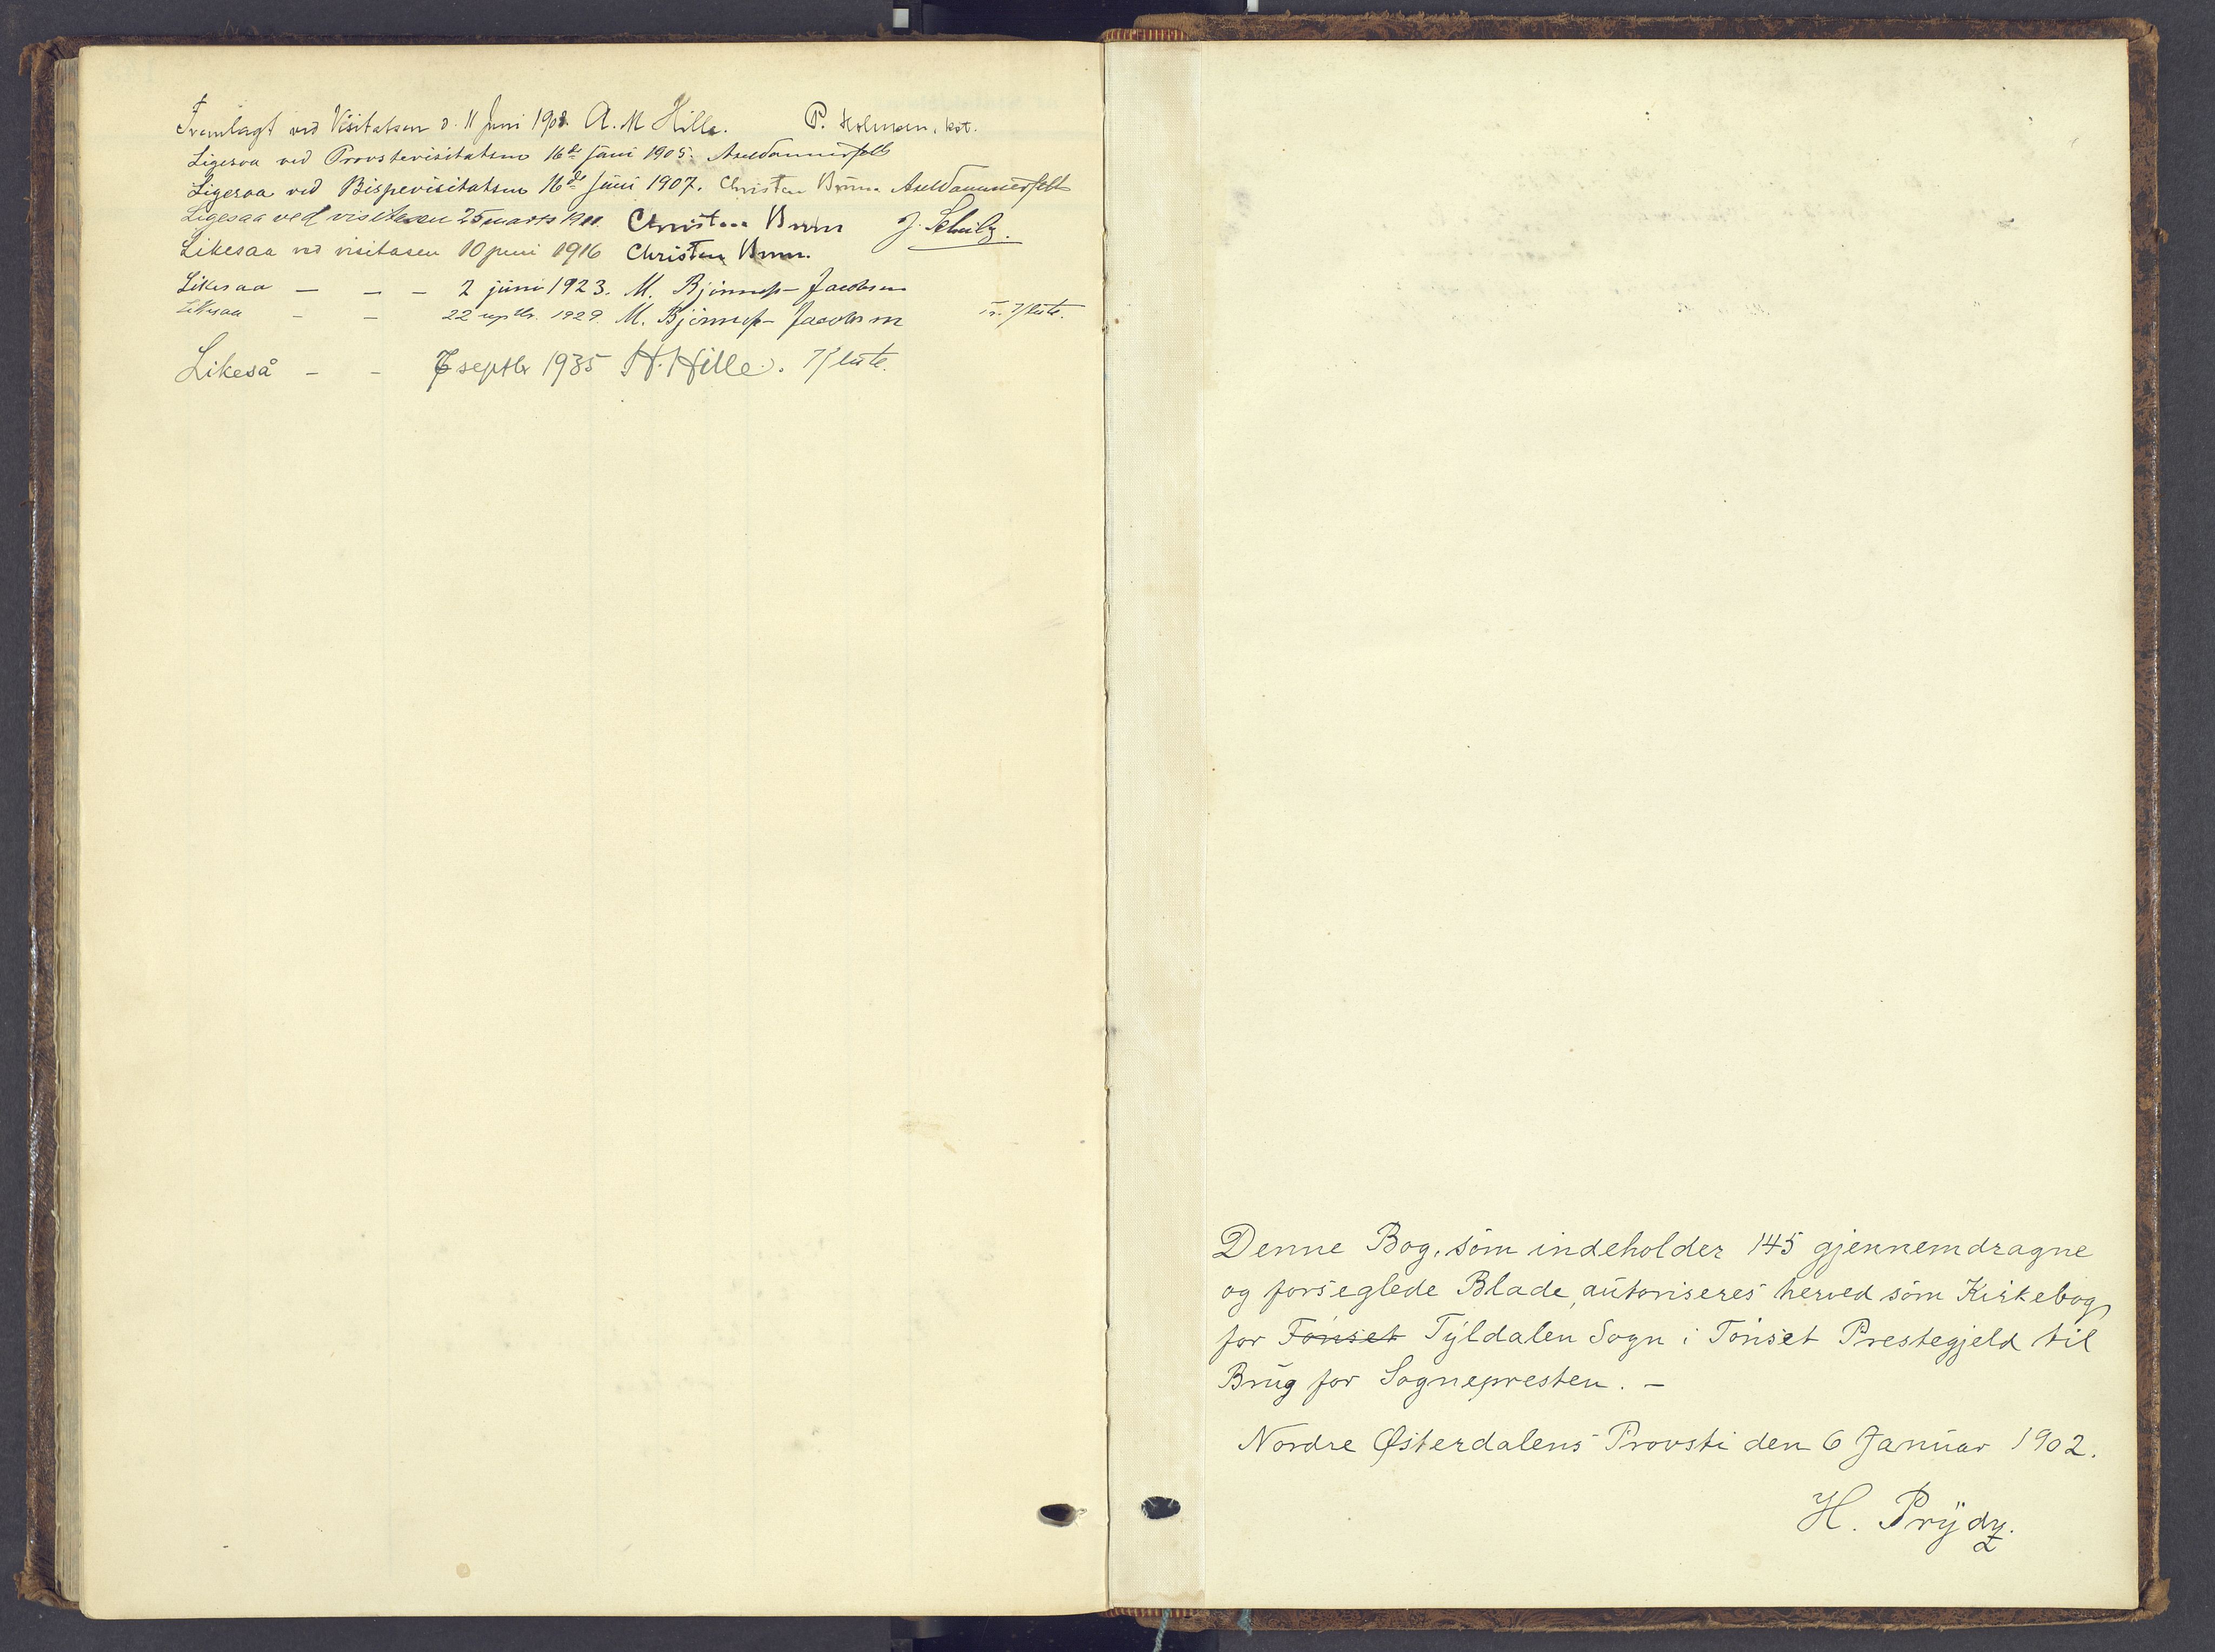 Fremlagt ved Visitatsen d. 11 Juni 1903. A. M Hille. P. Holmsen, kst.
Ligesaa ved Provstevisitatsen 16de Juni 1905. Axel Dannerfelt
Ligesaa ved Bispevisitatsen 16de Juni 1907. Christen Brun Axel Dannerfelt
Ligesaa ved visitasen 25 marts 1911. Christen Brun J. Scheilz.
Likesaa ved visitasen 10 juni 1916 Christen Brun.
Likesaa – – – 2 juni 1923. M. Bjönness-Jacobsen
Likesaa – – 22 septbr. 1929. M. Bjönness-Jacobsen
Likeså – – 7 septbr 1935 H. Hille.
Denne Bog, som indeholder 145 gjennemdragne
og forseglede Blade, autoriseres herved som Kirkebog
for Tönset Tyldalen Sogn i Tönset Prestegjeld til
Brug for Sognepresten. –
Nordre Østerdalens Provsti den 6 Januar 1902.
H. Prydz.